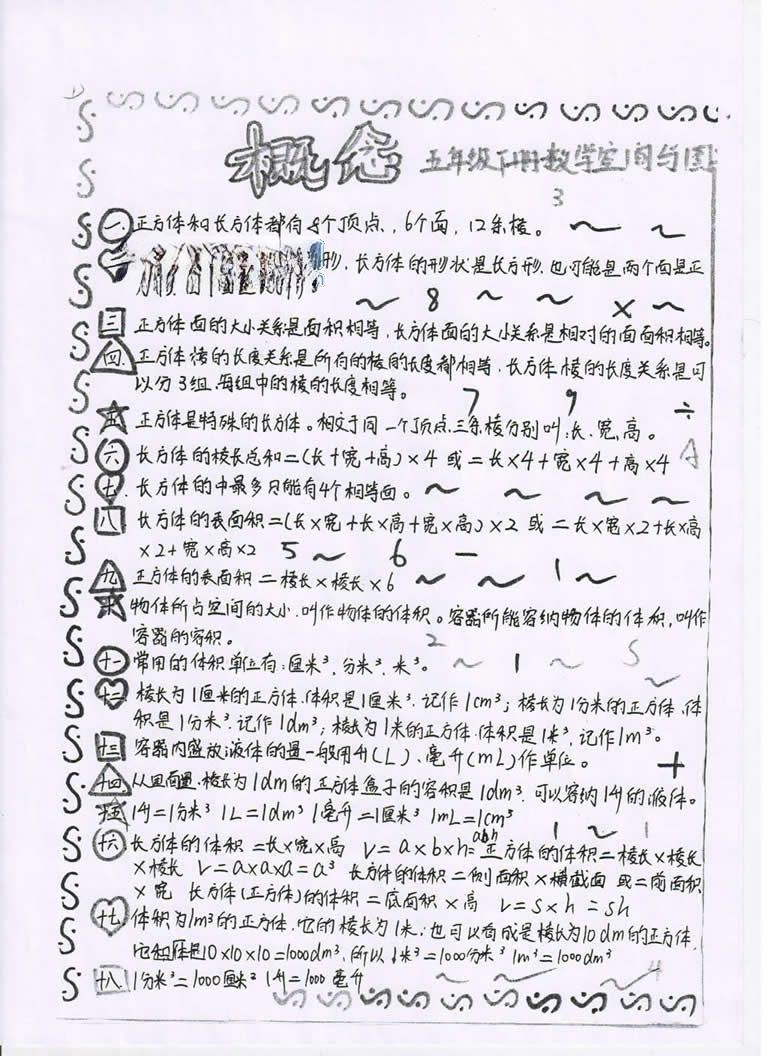 概念 五年级下册数学空间与图
3
一 正方体和长方体都有8个顶点,6个面,12条棱。
形,长方体的形状是长方形,也可能是两个面是正
8 ×
三 正方体面的大小关系是面积相等,长方体面的大小关系是相对的面面积相等。
四 正方体棱的长度关系是所有的棱的长度都相等,长方体棱的长度关系是可
以分3组,每组中的棱的长度相等。
7 9 ÷
五 正方体是特殊的长方体。相交于同一个顶点三条棱分别叫:长、宽、高。
六 长方体的棱长总和=(长+宽+高)×4 或=长×4+宽×4+高×4
七 长方体的中最多只能有4个相等面。
八 长方体的表面积=(长×宽+长×高+宽×高)×2 或=长×宽×2+长×高
×2+宽×高×2 5 6 -
九 正方体的表面积=棱长×棱长×6 1
十 物体所占空间的大小,叫作物体的体积。容器所能容纳物体的体积,叫作
容器的容积。
2
十一 常用的体积单位有:厘米³,分米³,米³。 1 5
十二 棱长为1厘米的正方体,体积是1厘米³,记作1cm³;棱长为1分米的正方体,体
积是1分米³,记作1dm³;棱长为1米的正方体,体积是1米³,记作1m³。
十三 容器内盛放液体的量一般用升(L)、毫升(mL)作单位。 +
十四 从里面量,棱长为1dm的正方体盒子的容积是1dm³,可以容纳1升的液体。
十五 1升=1分米³ 1L=1dm³ 1毫升=1厘米³ 1mL=1cm³
1 1
十六 长方体的体积=长×宽×高 V=a×b×h=abh 正方体的体积=棱长×棱长
×棱长 V=a×a×a=a³ 长方体的体积=侧面积×横截面 或=前面积
×宽 长方体(正方体)的体积=底面积×高 V=S×h=Sh
十七 体积为1m³的正方体,它的棱长为1米,也可以看成是棱长为10dm的正方体,
10×10×10=1000dm³,所以1米³=1000分米³ 1m³=1000dm³
十八 1分米³=1000厘米³ 1升=1000毫升 4